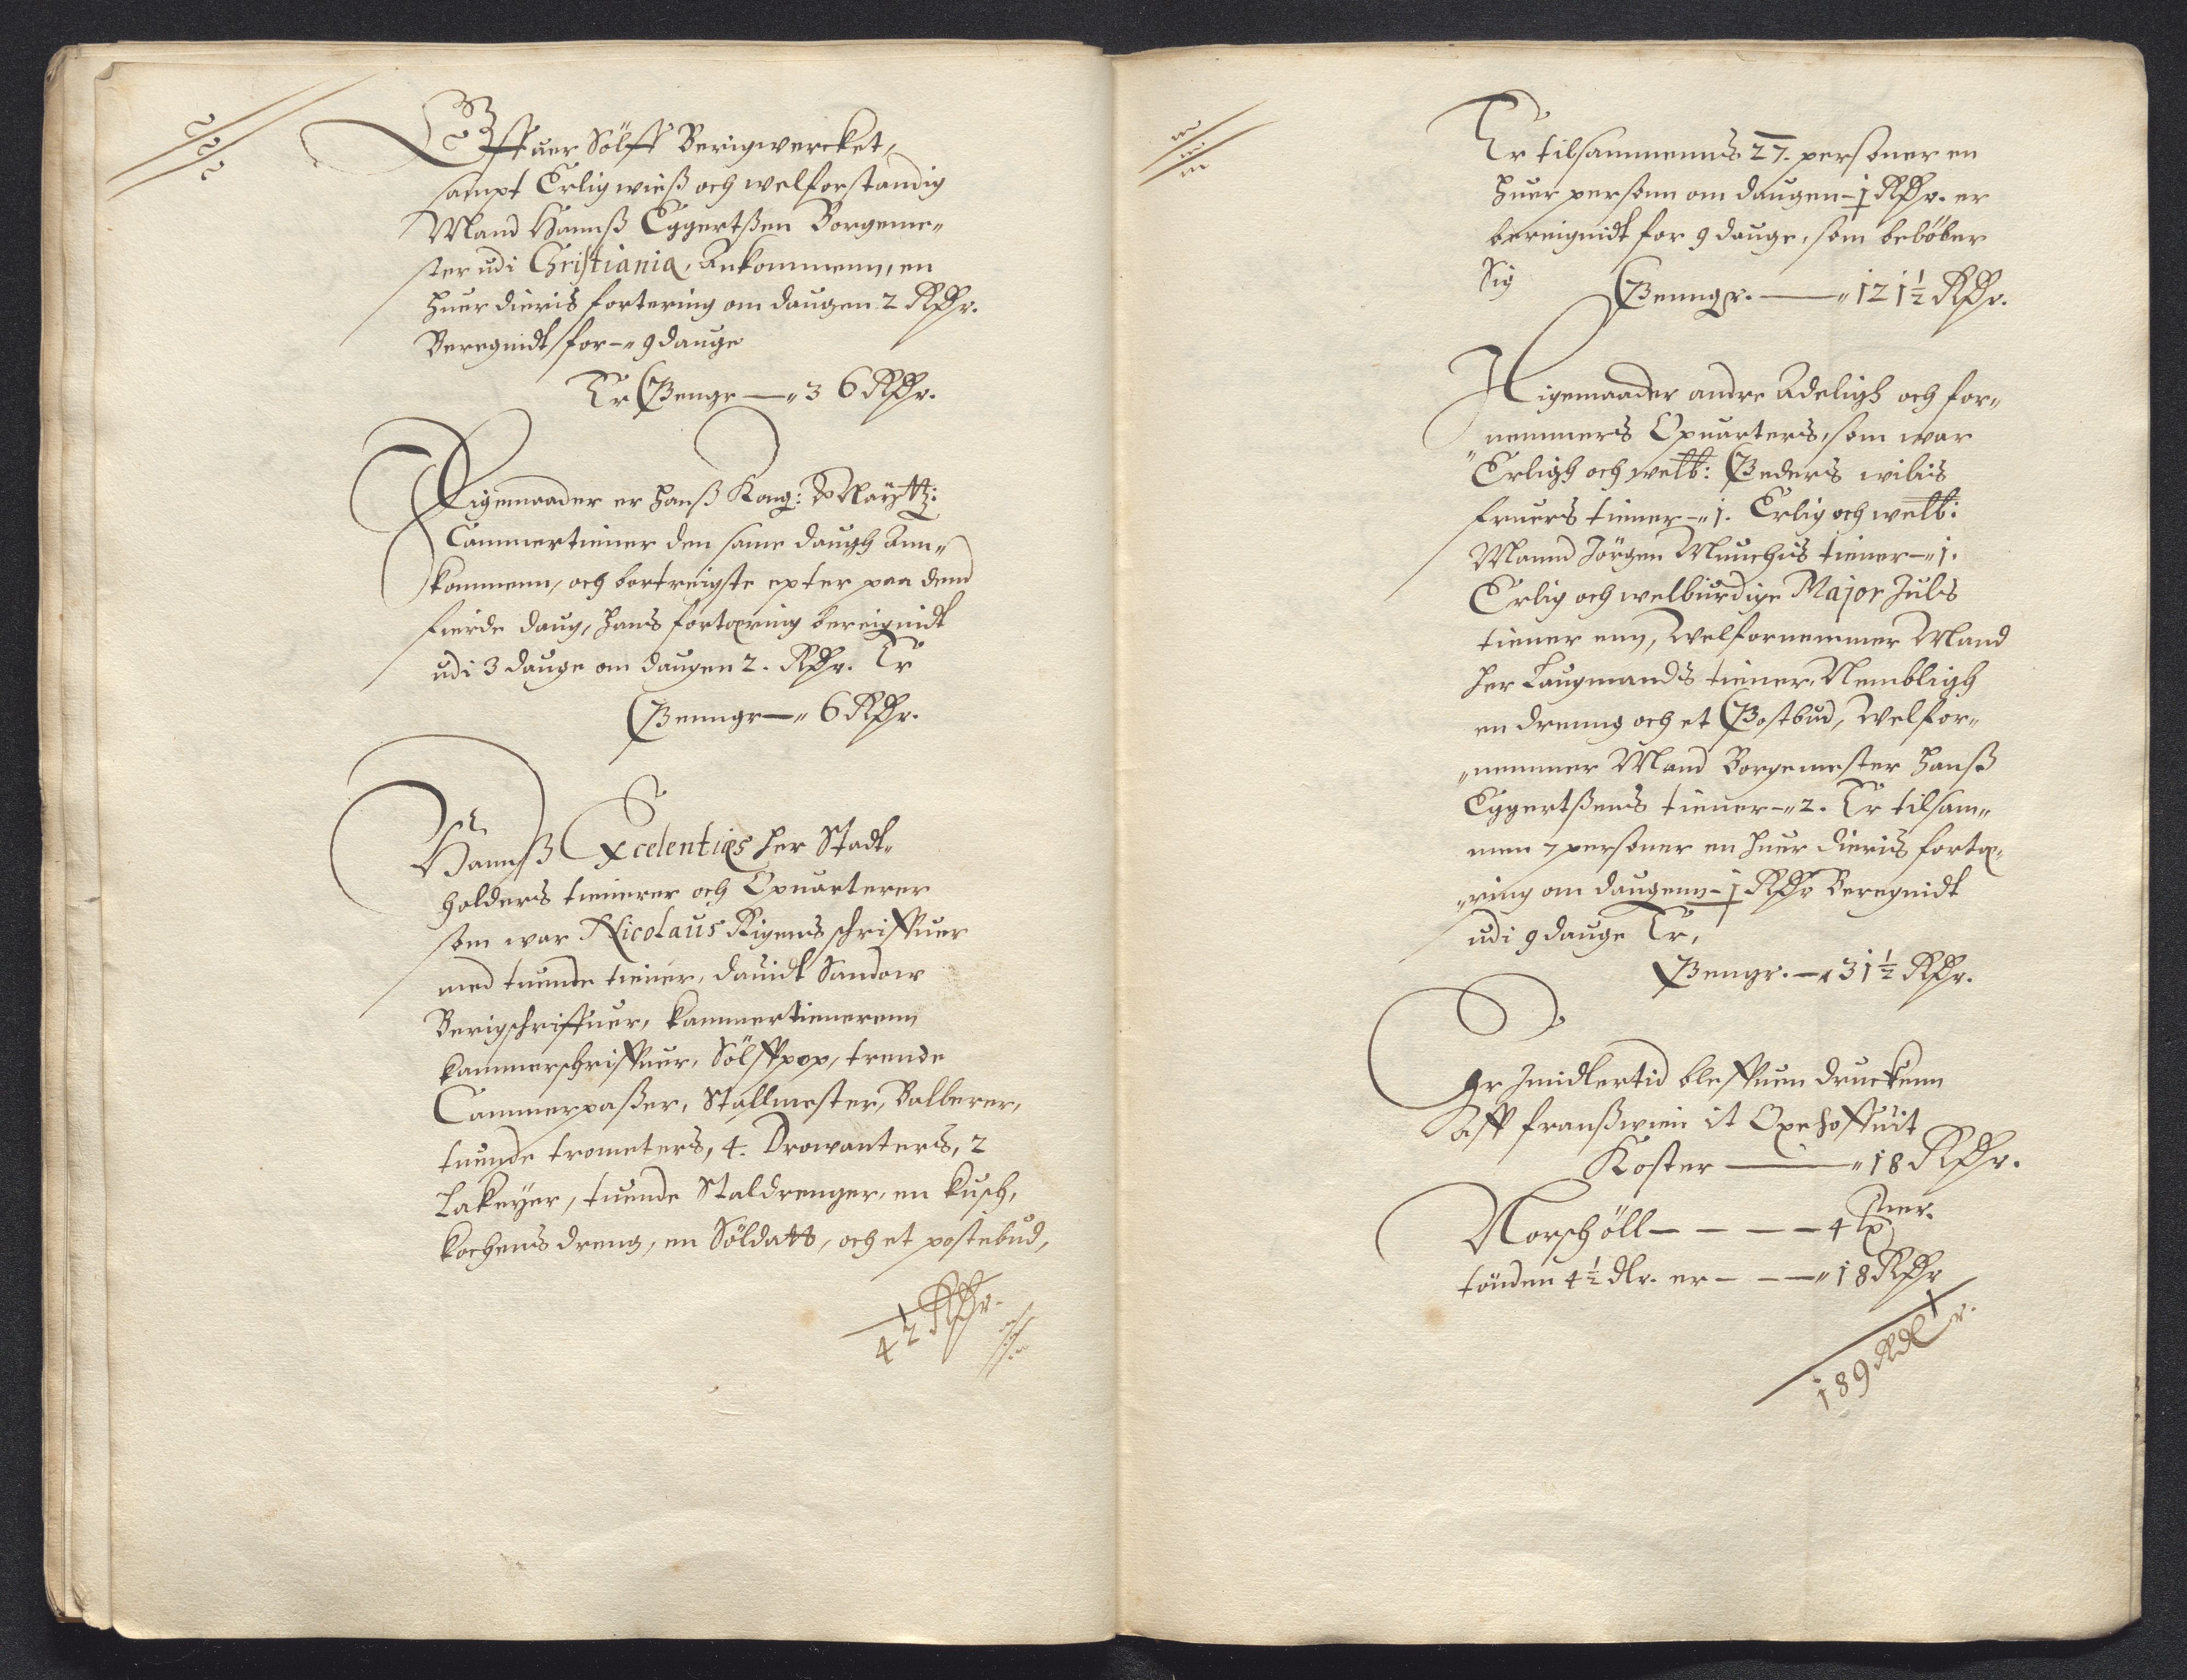 Offuer Sölff Berigwercket,
sampt Erlig wieß och welforstandig
Mand Hannß Eggertßen Borgeme„
ster udi Christiania, Ankommenn, en
huer dieris fortering om daugen 2 Rdr.
Beregnidt for –„ 9 dauge
Er Penge —„ 36 Rdr.
Ligemaader er hanß Kong: Maÿtt:
Cammertiener den same daugh Ann„
kommenn, och bortreigste epter paa dend
fierde daug, hans fortæring bereignidt
udi 3 dauge om daugen 2. Rdr. Er
Pennge —„ 6 Rdr.
Hannß Excelenties her Stadt„
holders tienerer och Opuarterer
som war Nicolaus Rigens schriffuer
med tuende tiener, dauidt Sandow
Berigschriffuer, kammertienerenn
kammerschriffuer, Sölffpop, trende
Cammerpaßer, Stallmester, Balberer,
tuende trometers, 4. Drowanters, 2
Lakeyer, tuende Staldrenger, en kusch,
kochens dreng, en Söldatt, och et postebud,
42 Rdr.
Er tilsammenns 27. personer en
huer personn om daugen – ½ Rdr. er
bereignidt for 9 dauge, som beböber
Sig Penngr. ——„ 121½ Rdr.
Ligemaader andre Adeligh och for„
nemmers Opuarters, som war
Erligh och welb: Peders wibis
fruers tiener –„ 1. Erlig och welb:
Mannd Jörgen Munchis tiener –„ 1.
Erlig och welbiurdige Major Juls
tiener enn, Welfornemmer Mand
her Laugmands tiener, Nembligh
en drenng och et Postbud, Welfor„
„nemmer Mand Borgemester Hanß
Eggertßens tiener –„ 2. Er tilsam„
men 7 personer en huer dieris fortæ„
„ring om daugenn – ½ Rdr Beregnidt
udi 9 dauge Er,
Pengr. –„ 31½ Rdr.
Er Imidlertid bleffuen druckenn
Aff franßwien it Oxehoffuit
Koster ——„ 18 Rdr.
Norschöll – – – – 4 tner.
tönden 4½ dlr. er – – –„ 18 Rdr
189 Rdlr.